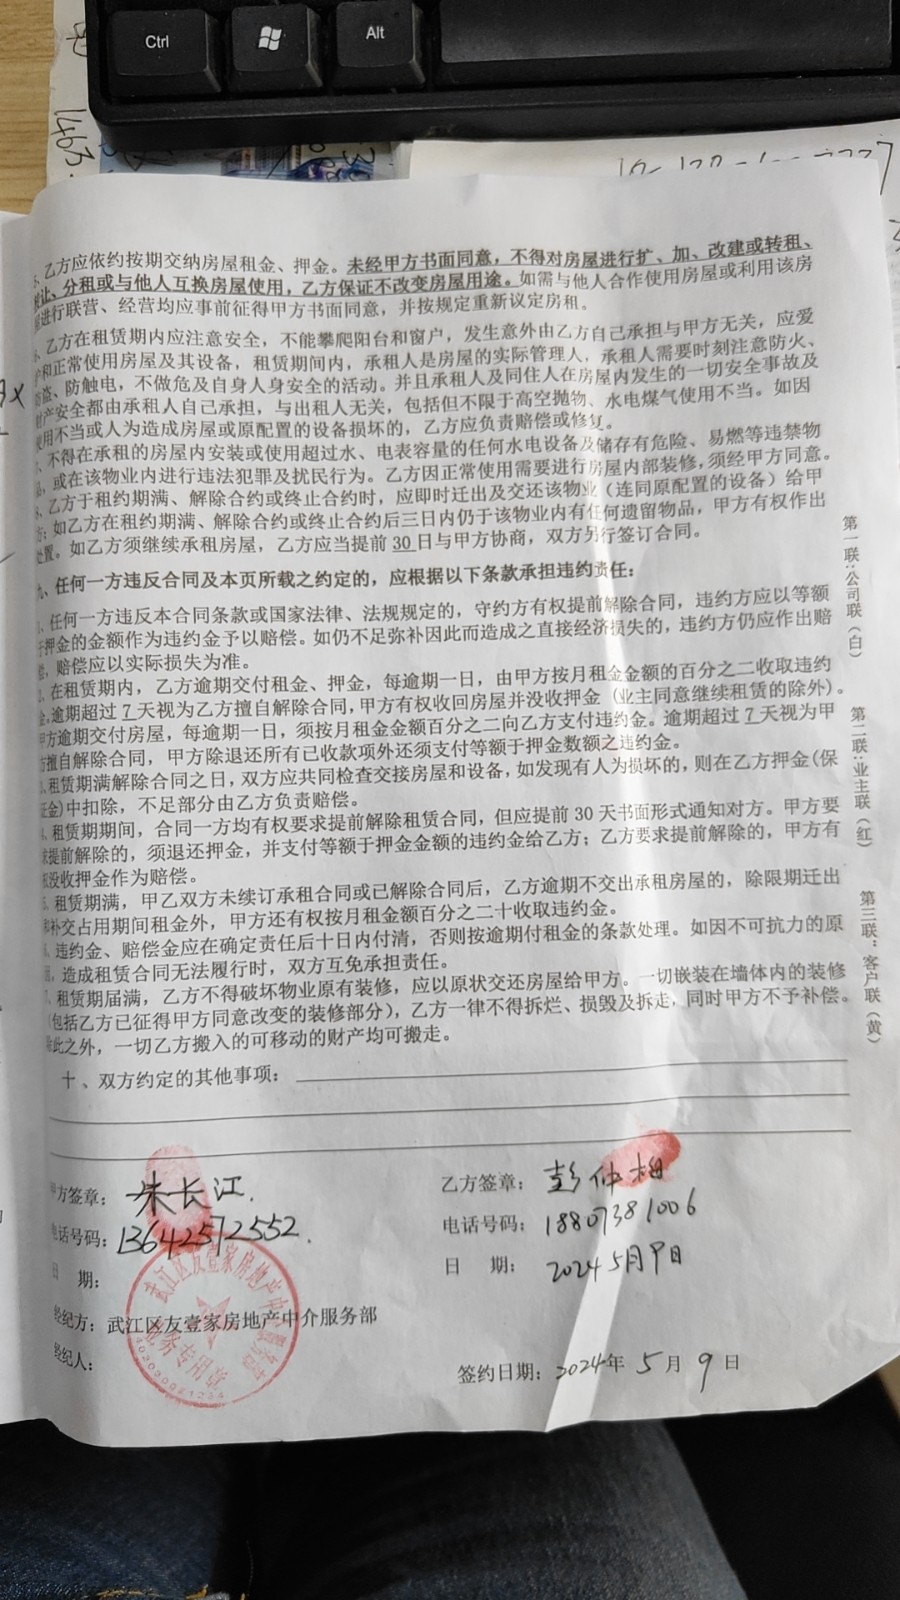 Ctrl
Alt
1463
、乙方应依约按期交纳房屋租金、押金。未经甲方书面同意，不得对房屋进行扩、加、改建或转租、
让、分租或与他人互换房屋使用，乙方保证不改变房屋用途。如需与他人合作使用房屋或利用该房
进行联营、经营均应事前征得甲方书面同意，并按规定重新议定房租。
、乙方在租赁期内应注意安全，不能攀爬阳台和窗户，发生意外由乙方自己承担与甲方无关，应爱
和正常使用房屋及其设备，租赁期间内，承租人是房屋的实际管理人，承租人需要时刻注意防火、
防盗、防触电，不做危及自身人身安全的活动。并且承租人及同住人在房屋内发生的一切安全事故及
财产安全都由承租人自己承担，与出租人无关，包括但不限于高空抛物、水电煤气使用不当。如因
使用不当或人为造成房屋或原配置的设备损坏的，乙方应负责赔偿或修复。
、不得在承租的房屋内安装或使用超过水、电表容量的任何水电设备及储存有危险、易燃等违禁物
品，或在该物业内进行违法犯罪及扰民行为。乙方因正常使用需要进行房屋内部装修，须经甲方同意。
、乙方于租约期满、解除合约或终止合约时，应即时迁出及交还该物业（连同原配置的设备）给甲
方；如乙方在租约期满、解除合约或终止合约后三日内仍于该物业内有任何遗留物品，甲方有权作出
处置。如乙方须继续承租房屋，乙方应当提前30日与甲方协商，双方另行签订合同。
九、任何一方违反合同及本页所载之约定的，应根据以下条款承担违约责任：
、任何一方违反本合同条款或国家法律、法规规定的，守约方有权提前解除合同，违约方应以等额
于押金的金额作为违约金予以赔偿。如仍不足弥补因此而造成之直接经济损失的，违约方仍应作出赔
偿，赔偿应以实际损失为准。
、在租赁期内，乙方逾期交付租金、押金，每逾期一日，由甲方按月租金金额的百分之二收取违约
金。逾期超过7天视为乙方擅自解除合同，甲方有权收回房屋并没收押金（业主同意继续租赁的除外）。
甲方逾期交付房屋，每逾期一日，须按月租金金额百分之二向乙方支付违约金。逾期超过7天视为甲
方擅自解除合同，甲方除退还所有已收款项外还须支付等额于押金数额之违约金。
、租赁期满解除合同之日，双方应共同检查交接房屋和设备，如发现有人为损坏的，则在乙方押金(保
证金)中扣除，不足部分由乙方负责赔偿。
、租赁期期间，合同一方均有权要求提前解除租赁合同，但应提前30天书面形式通知对方。甲方要
求提前解除的，须退还押金，并支付等额于押金金额的违约金给乙方；乙方要求提前解除的，甲方有
权没收押金作为赔偿。
、租赁期满，甲乙双方未续订承租合同或已解除合同后，乙方逾期不交出承租房屋的，除限期迁出
和补交占用期间租金外，甲方还有权按月租金额百分之二十收取违约金。
、违约金、赔偿金应在确定责任后十日内付清，否则按逾期付租金的条款处理。如因不可抗力的原
因，造成租赁合同无法履行时，双方互免承担责任。
、租赁期届满，乙方不得破坏物业原有装修，应以原状交还房屋给甲方。一切嵌装在墙体内的装修
（包括乙方已征得甲方同意改变的装修部分），乙方一律不得拆烂、损毁及拆走，同时甲方不予补偿。
除此之外，一切乙方搬入的可移动的财产均可搬走。
十、双方约定的其他事项：
甲方签章：朱长江
乙方签章：彭仲相
电话号码：13642572552
电话号码：18807381006
日期：
日期：2024 5月9日
经纪方：武江区友壹家房地产中介服务部
经纪人：
签约日期：2024年5月9日
武江区友壹家房地产中介服务部
业务专用章
第一联：公司联（白）
第二联：业主联（红）
第三联：客户联（黄）